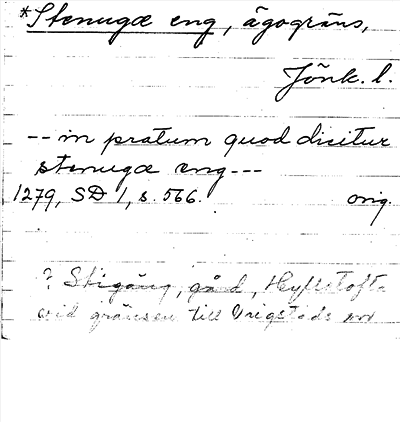 *Stenugæ eng, ägogräns,
Jönk. l.
-- in pratum quod dicitur
stenugæ eng---
1279, SD 1, s. 566. orig.
? Stigäng, gård, Hyllstofta
vid gränsen till Vrigstads